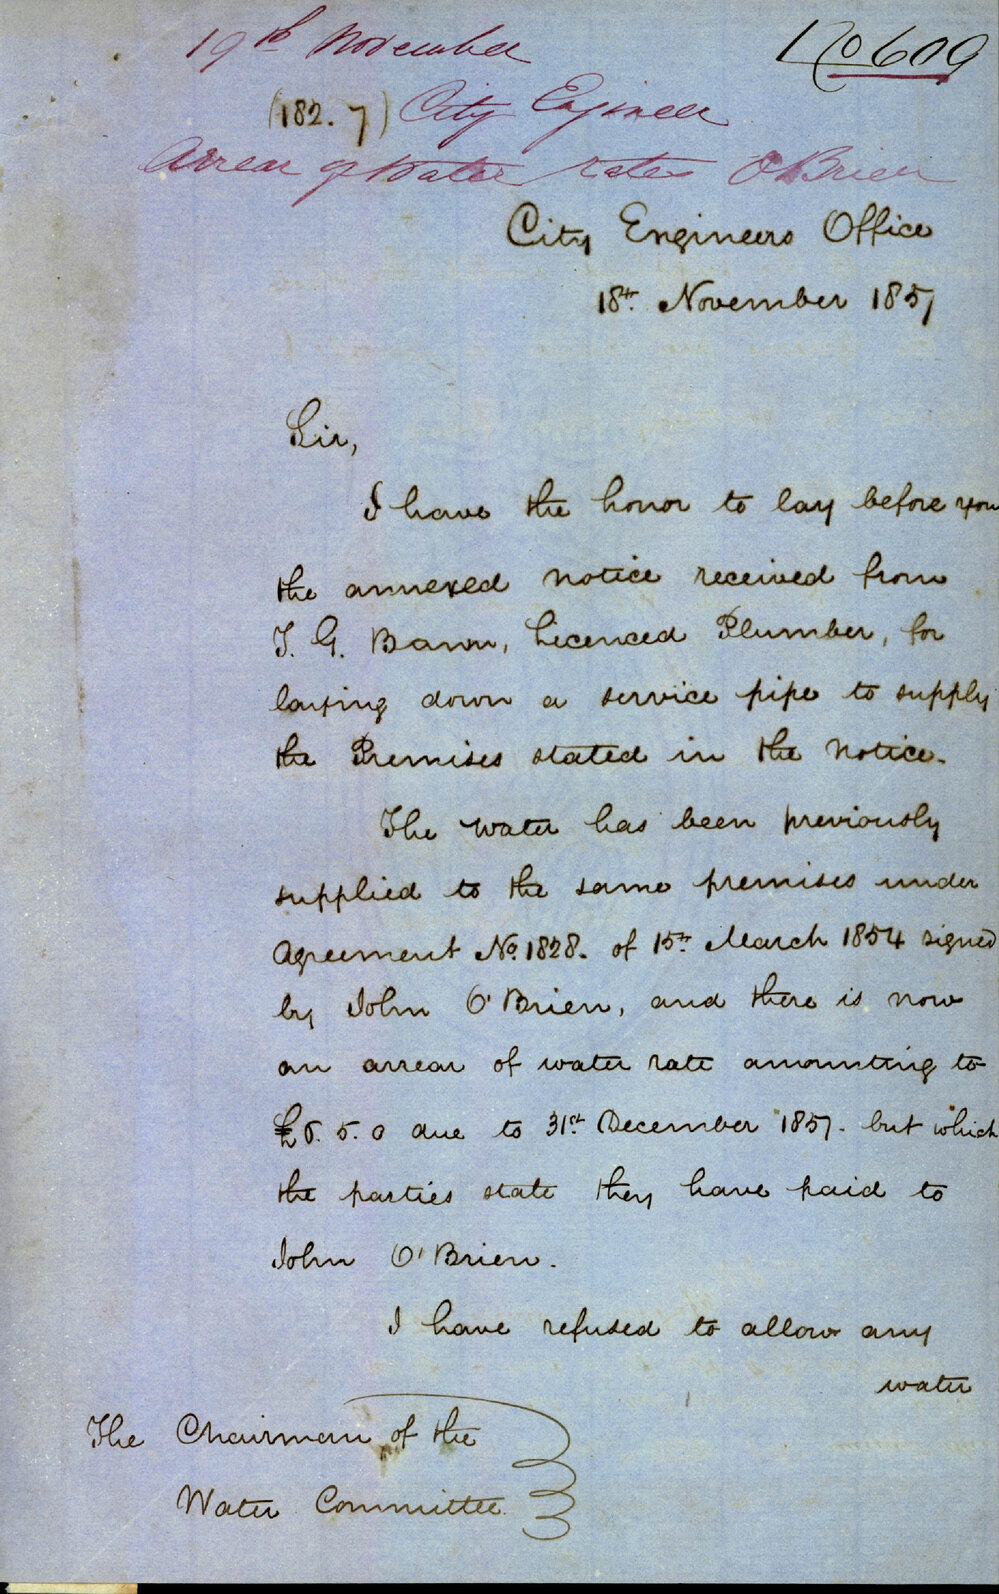 19th November
No 609
(182. 7) City Engineer
Arrear of Water rates O'Brien
City Engineers Office
18th November 1857
Sir,
I have the honor to lay before you
the annexed notice received from
T. G. Bawn, Licenced Plumber, for
laying down a service pipe to supply
the Premises stated in the notice.
The water has been previously
supplied to the same premises under
Agreement No. 1828. of 15th March 1854 signed
by John O'Brien, and there is now
an arrear of water rate amounting to
£6. 5. 0 due to 31st December 1857. but which
the parties state they have paid to
John O'Brien.
I have refused to allow any
water
The Chairman of the
Water Committee